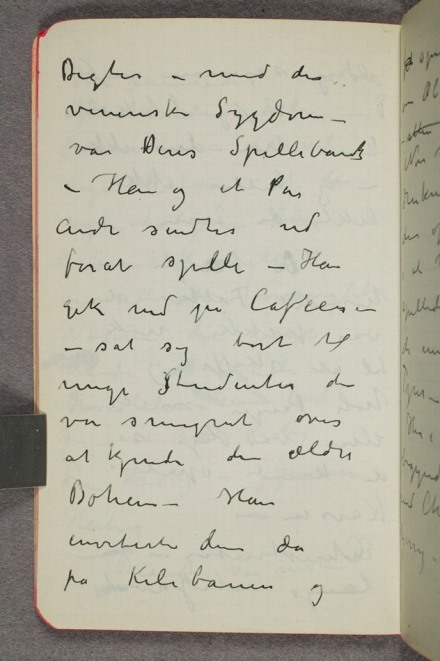 Digter – med den
veneriske Sygdom –
var Deres Spillebank
– Han og et Par
andre sendtes ud
forat spille – Han
gik ned på Cafeen –
– sat sig bort til
unge Studenter der
var smigret over
at kjende den ældre
Bohem – Han
inviterte dem da
på Keilebanen og